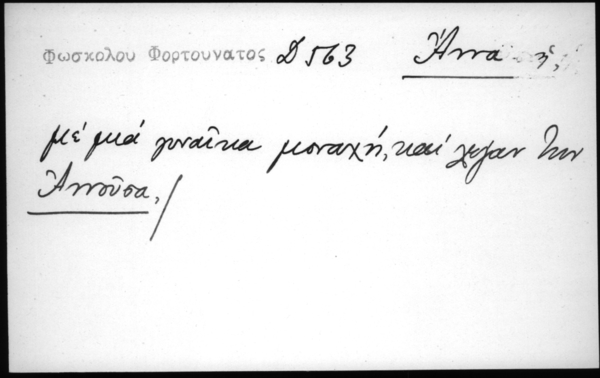 Φωσκολου Φορτουνατος Δ 563 Ἄννα ἡ,
μέ μιά γυναῖκα μοναχή, καί λέγαν την
Ἀννοῦσα,/